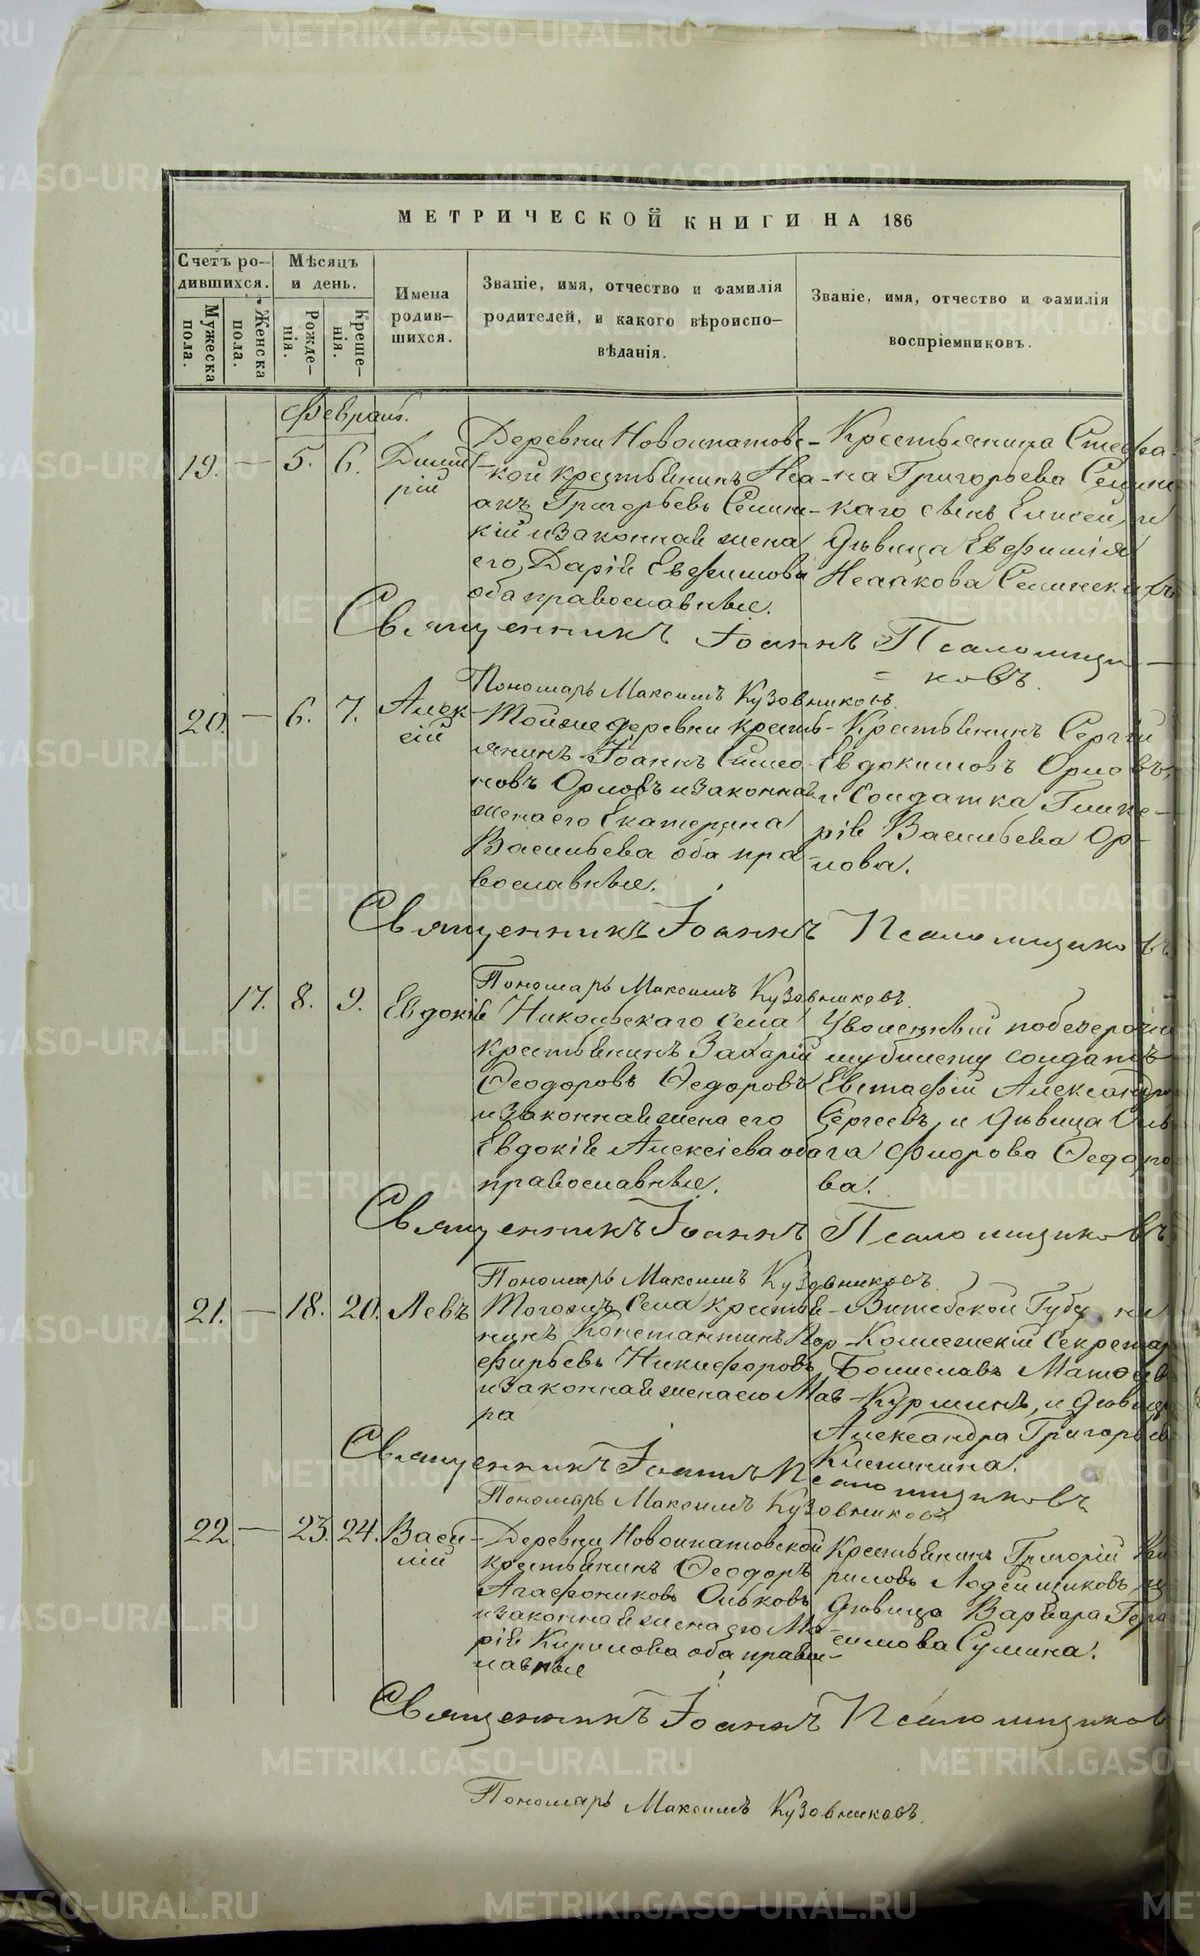 МЕТРИЧЕСКОЙ КНИГИ НА 186
Счетъ ро-
дившихся.
Мужеска
пола.
Женска
пола.
Мѣсяцъ
и день.
Рожде-
нія.
Креще-
нія.
Имена
родив-
шихся.
Званіе, имя, отчество и фамилія
родителей, и какого вѣроиспо-
вѣданія.
Званіе, имя, отчество и фамилія
воспріемниковъ.
Февраль.
19. — 5. 6. Дмит-
рій
Деревни Новоипатовс-
кой крестьянинъ Иса-
акъ Григорьевъ
кій и законная жена
его Дарія Евфимова
оба православные.
Крестьянина Стефа-
на Григорьева
каго сынъ Елисей, и
дѣвица Евфимія
Исаакова
Священникъ Іоаннъ Псаломщи-
ковъ.
Пономарь Максимъ Кузовниковъ.
20. — 6. 7. Алек-
сій
Тойже деревни кресть-
янинъ Іоаннъ Симео-
новъ Орловъ и законная
жена его Екатерина
Васильева оба пра-
вославные.
Крестьянинъ Сергій
Евдокимовъ Орловъ
и солдатка Глике-
рія Васильева Ор-
лова.
Священникъ Іоаннъ Псаломщиковъ
Пономарь Максимъ Кузовниковъ.
17. 8. 9. Евдокія
Никольскаго села
крестьянинъ Захарій
Ѳеодоровъ Ѳедоровъ
и законная жена его
Евдокія Алексіева оба
православные.
Уволенный
солдатъ
Евстафій
Сергеевъ, и дѣвица Оль-
га Флорова Ѳедоро-
ва.
Священникъ Іоаннъ Псаломщиковъ.
Пономарь Максимъ Кузовниковъ.
21. — 18. 20. Левъ
Тогожъ села крестья-
нинъ Константинъ Пор-
фирьевъ Никифоровъ
и законная жена его Мав-
ра
Витебской
Коллежскій Секретарь
Болиславъ
и дѣвица
Александра Григорьева
Священникъ Іоаннъ Псаломщиковъ
Пономарь Максимъ Кузовниковъ
22. — 23. 24. Васи-
лій
Деревни Новоипатовской
крестьянинъ Ѳеодоръ
Агафониковъ Ольковъ
и законная жена его Ма-
рія Кирилова оба правос-
лавные
Крестьянинъ Григорій Ки-
риловъ Лодейщиковъ, и
дѣвица Варвара Гера-
симова Сумина.
Священникъ Іоаннъ Псаломщиковъ
Пономарь Максимъ Кузовниковъ.
METRIKI.GASO-URAL.RU